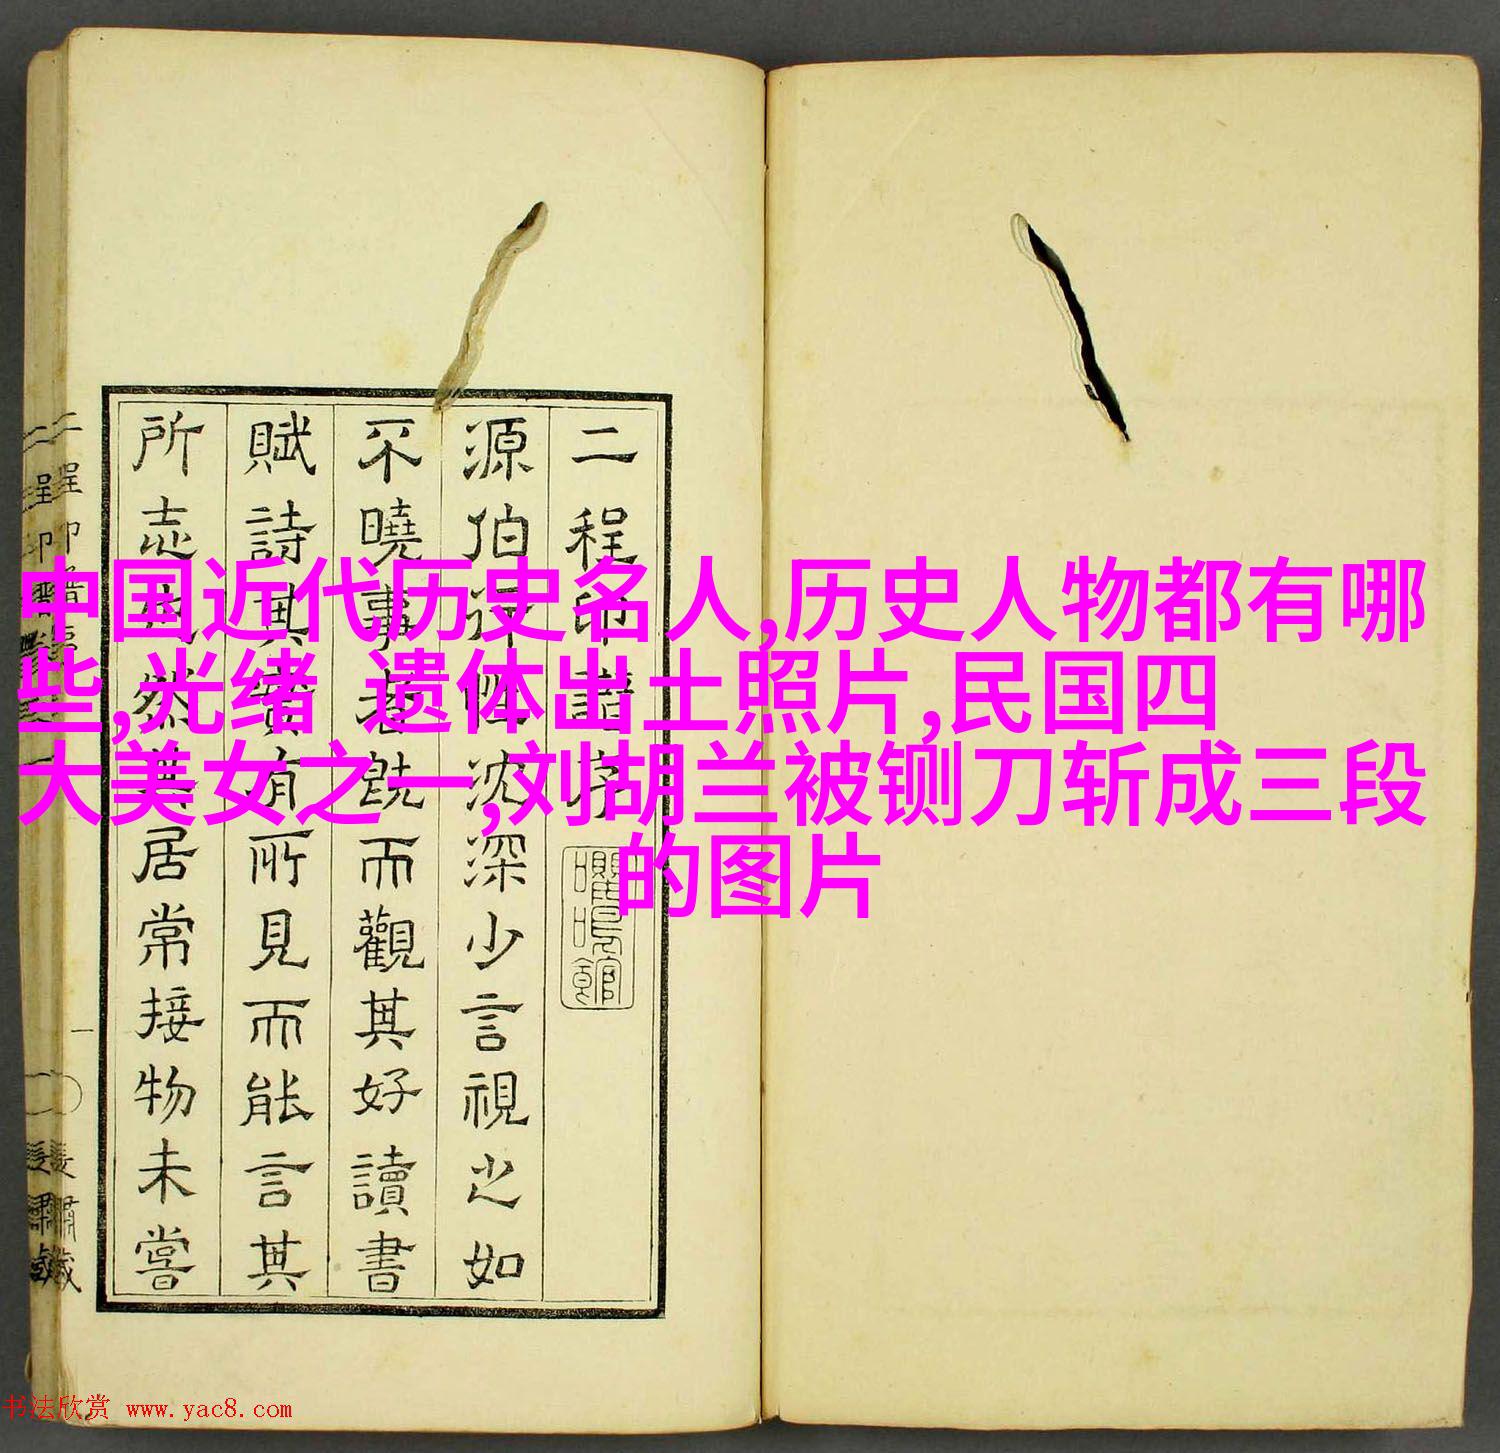 中国近代历史名人,历史人物都有哪
些,光绪 遗体出土照片,民国四
大美女之一,刘胡兰被铡刀斩成三段
的图片
二程印譜序
源伯性沈深少言視之如
不曉事者既而觀其好讀書
賦詩其實有所見而能言其
所志然居常接物未嘗
书法欣赏 www.yac8.com